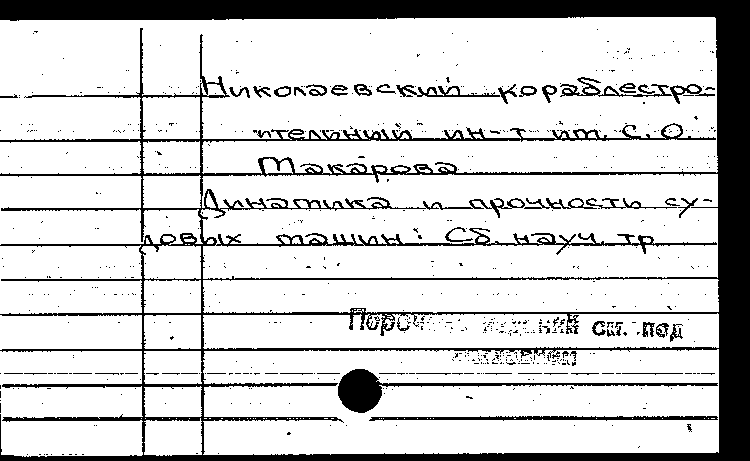 Николаевский кораблестро-
ительный ин-т им. С. О.
Макарова
Динамика и прочность су-
довых машин: Сб. науч. тр
см. под